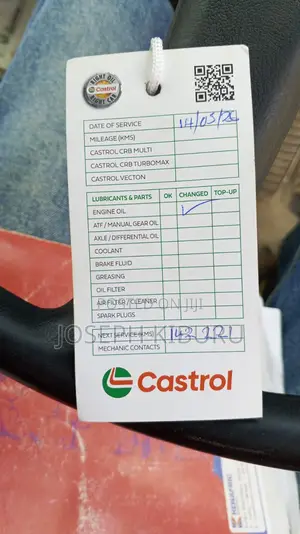 RIGHT OIL
Castrol
RIGHT CAR
DATE OF SERVICE 14/05/26
MILEAGE (KMS)
CASTROL CRB MULTI
CASTROL CRB TURBOMAX
CASTROL VECTON
LUBRICANTS & PARTS OK CHANGED TOP-UP
ENGINE OIL ✓
ATF / MANUAL GEAR OIL
AXLE / DIFFERENTIAL OIL
COOLANT
BRAKE FLUID
GREASING
OIL FILTER
POSTED ON JIJI
AIR FILTER / CLEANER
SPARK PLUGS
NEXT SERVICE (KMS)
MECHANIC CONTACTS
Castrol